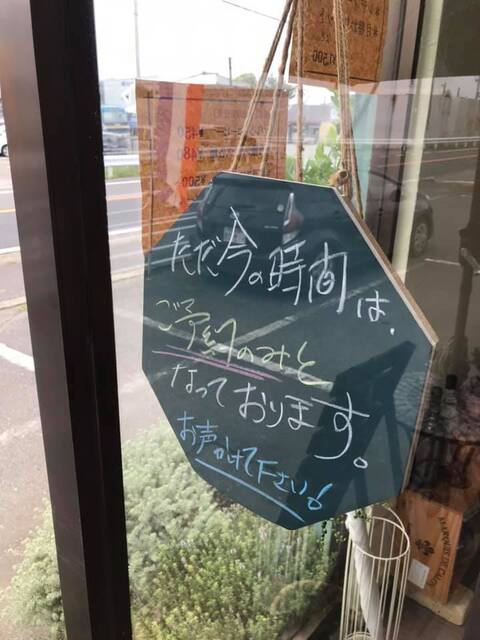 ただ今の時間は、
ご予約のみと
なっております。
お声かけて下さい!
¥450
¥480
¥500
¥1,500